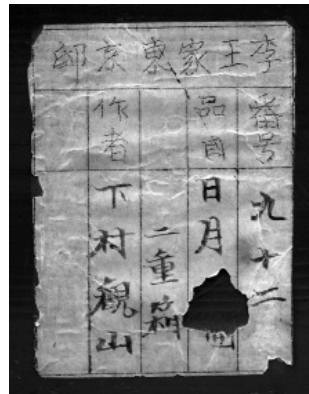 李王家東京邸
番号
九十二
品目
日月
二重箱
作者
下村観山